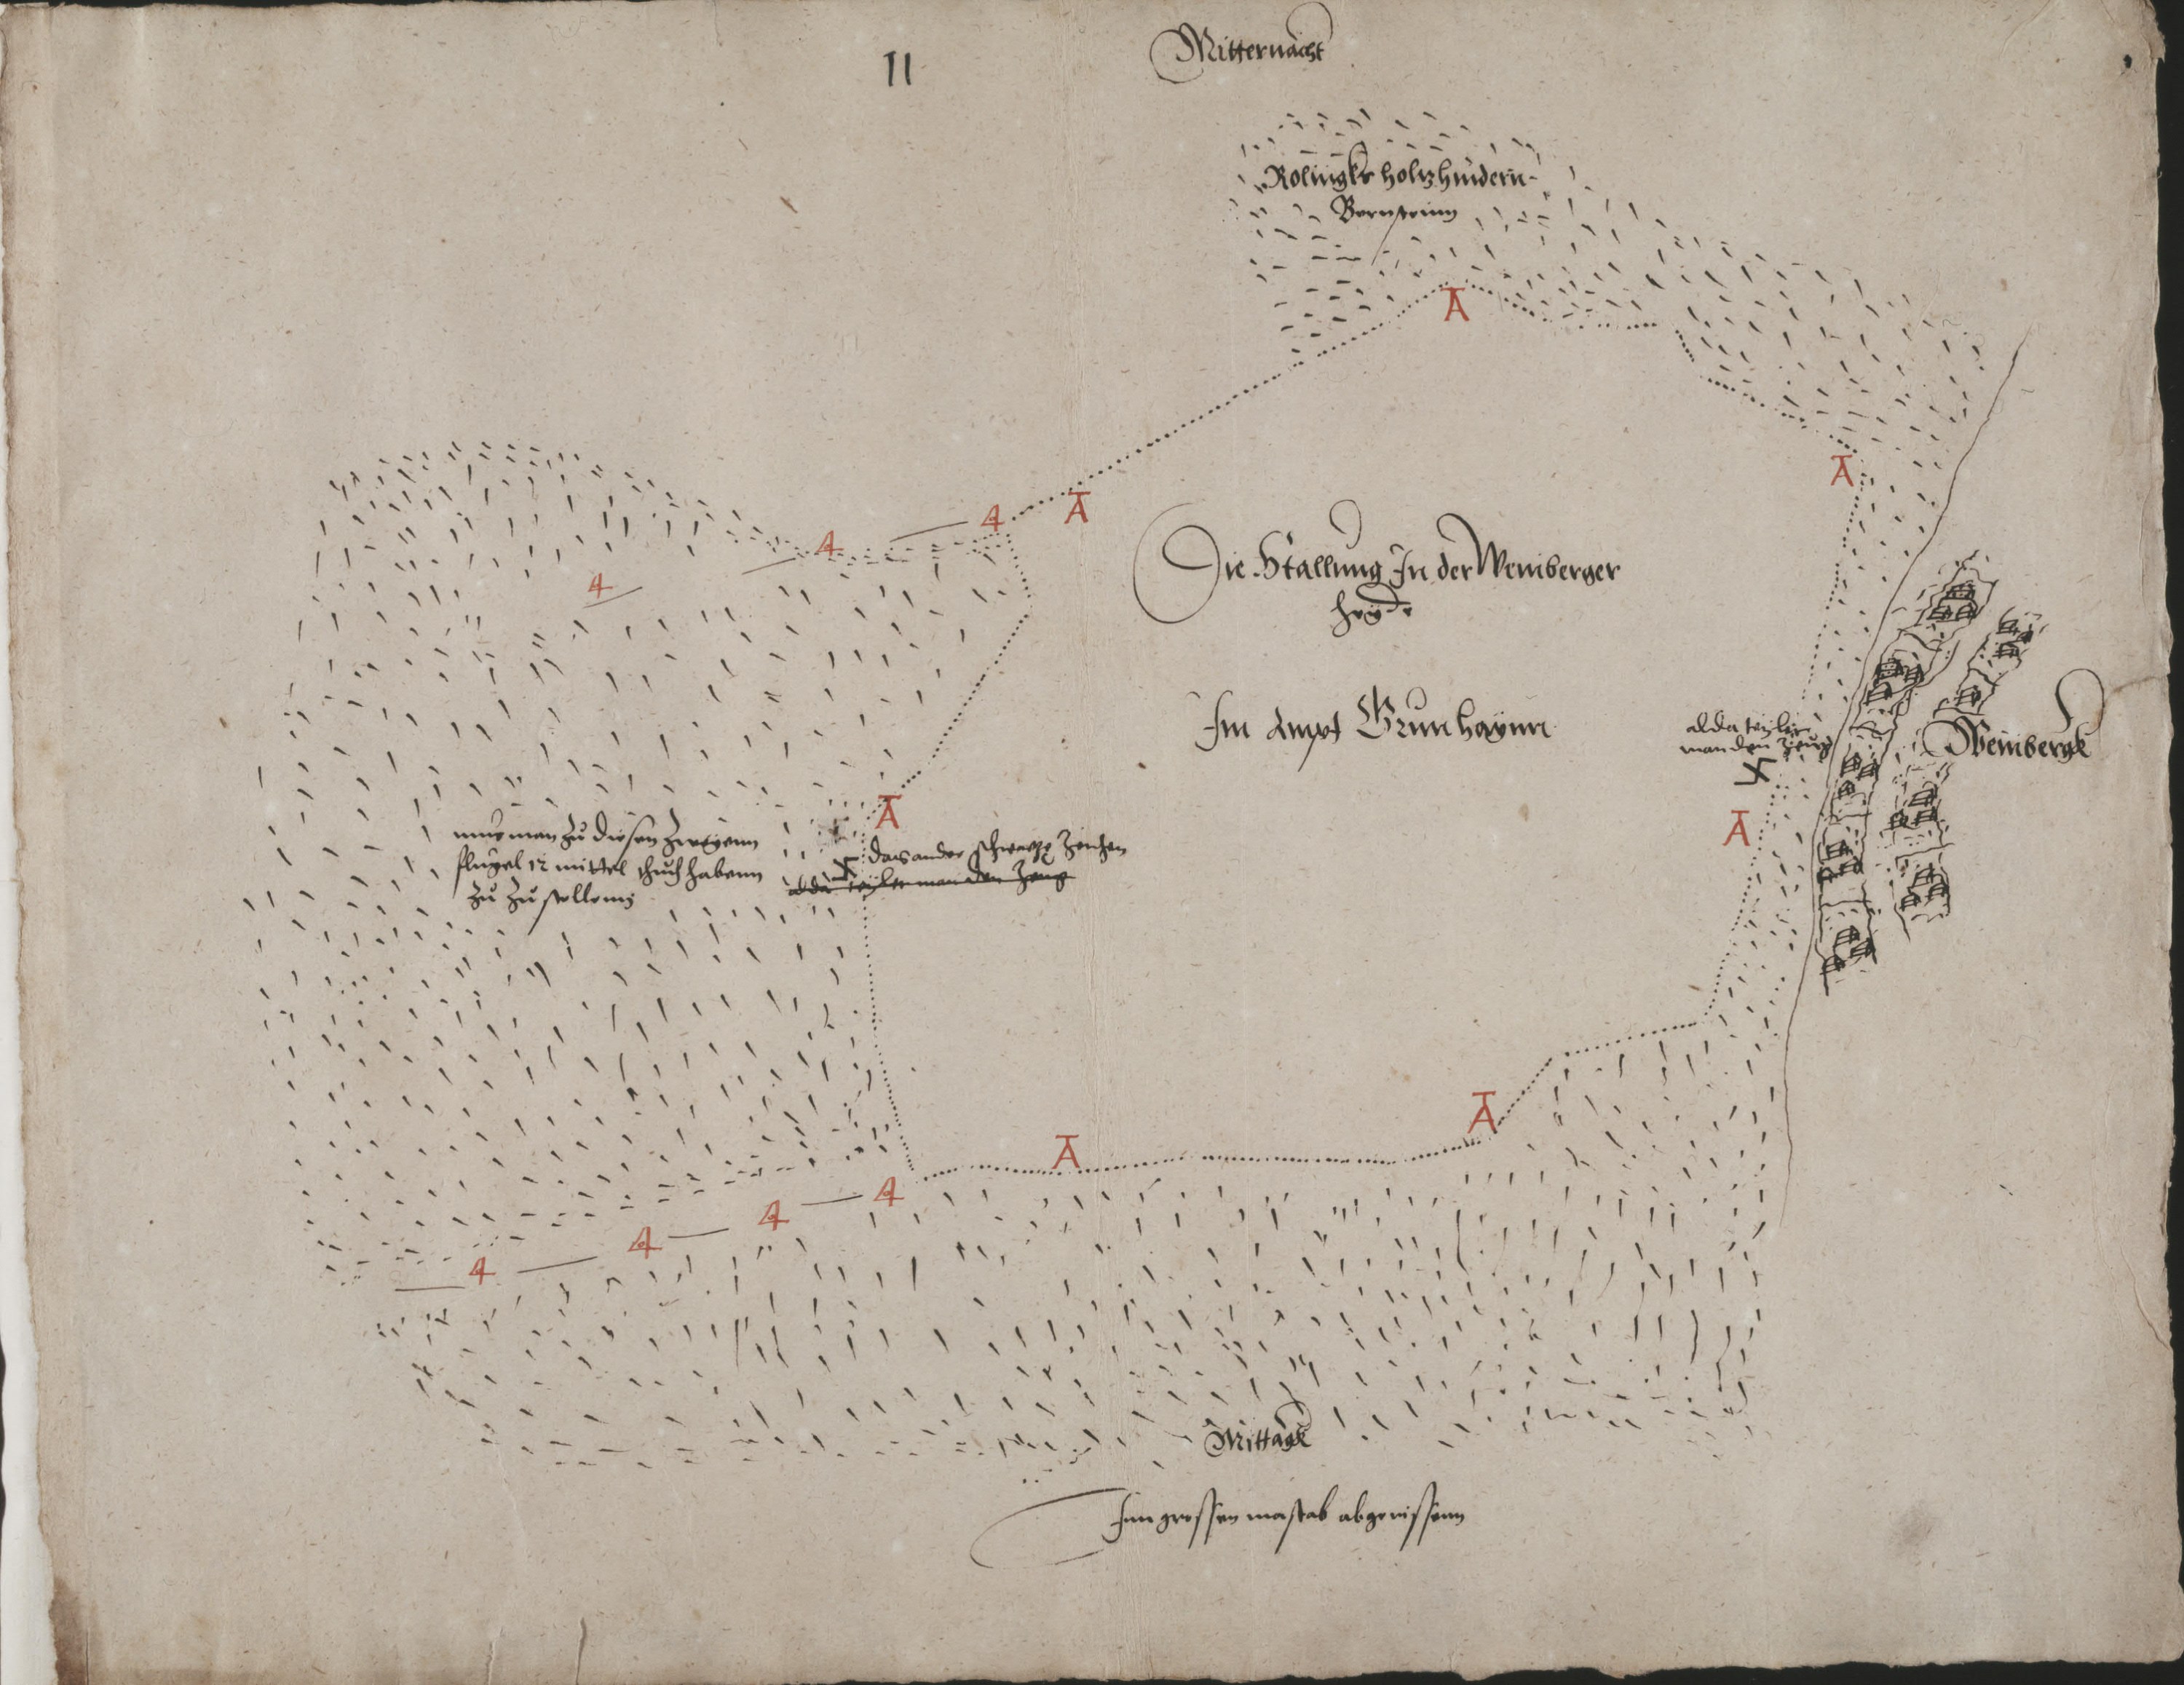 II
Mitternacht
Rolingks holtz hindern
Bernstein
A
A
4
A
4
4
Die Stallung In der Weinberger
heyd
Im Ampt Grunhaynn
alda teyler
man den Zeug
Weinbergk
A
A
mus man zu diesen zweyenn
flugel 12 mittel thuch habenn
zu zustellenn
das ander schwartz zeichen
alda teyler man den Zeug
A
A
4
4
4
4
Mittagk
Inn grossen mastab abgerissenn